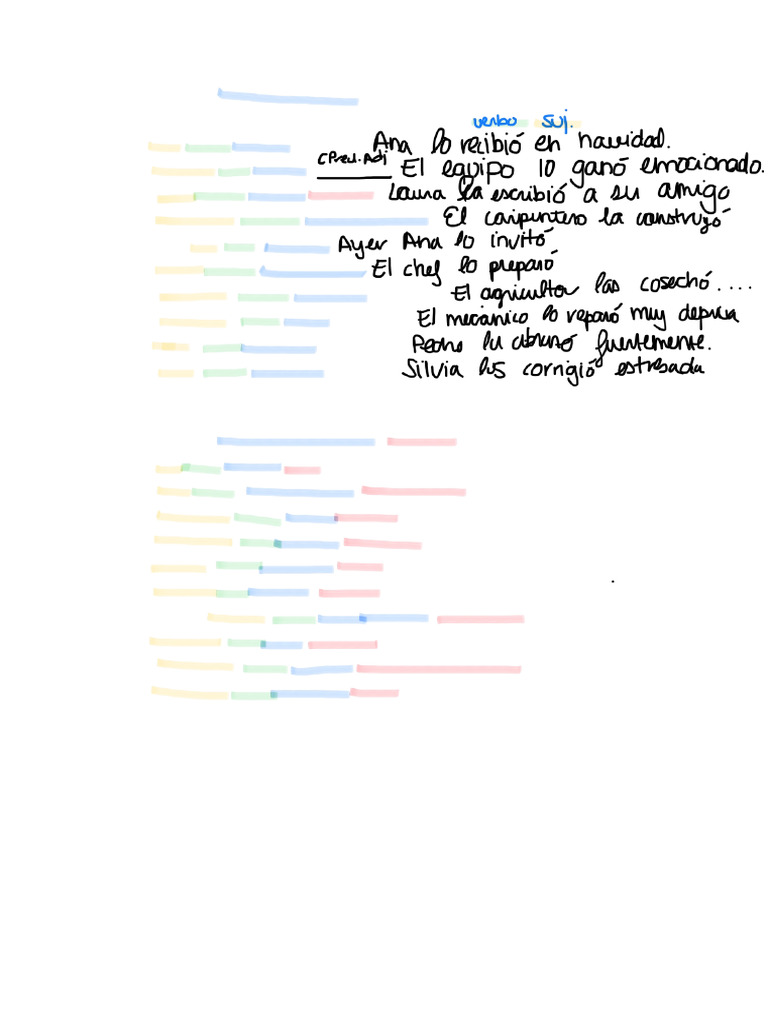 verbo suj.
Ana lo recibió en navidad.
CPred.Adj El equipo lo ganó emocionado.
Laura la escribió a su amigo
El carpintero la construyó
Ayer Ana lo invitó
El chef lo preparó
El agricultor las cosechó....
El mecánico lo reparó muy deprisa
Pedro la abrazó fuertemente.
Silvia los corrigió estresada